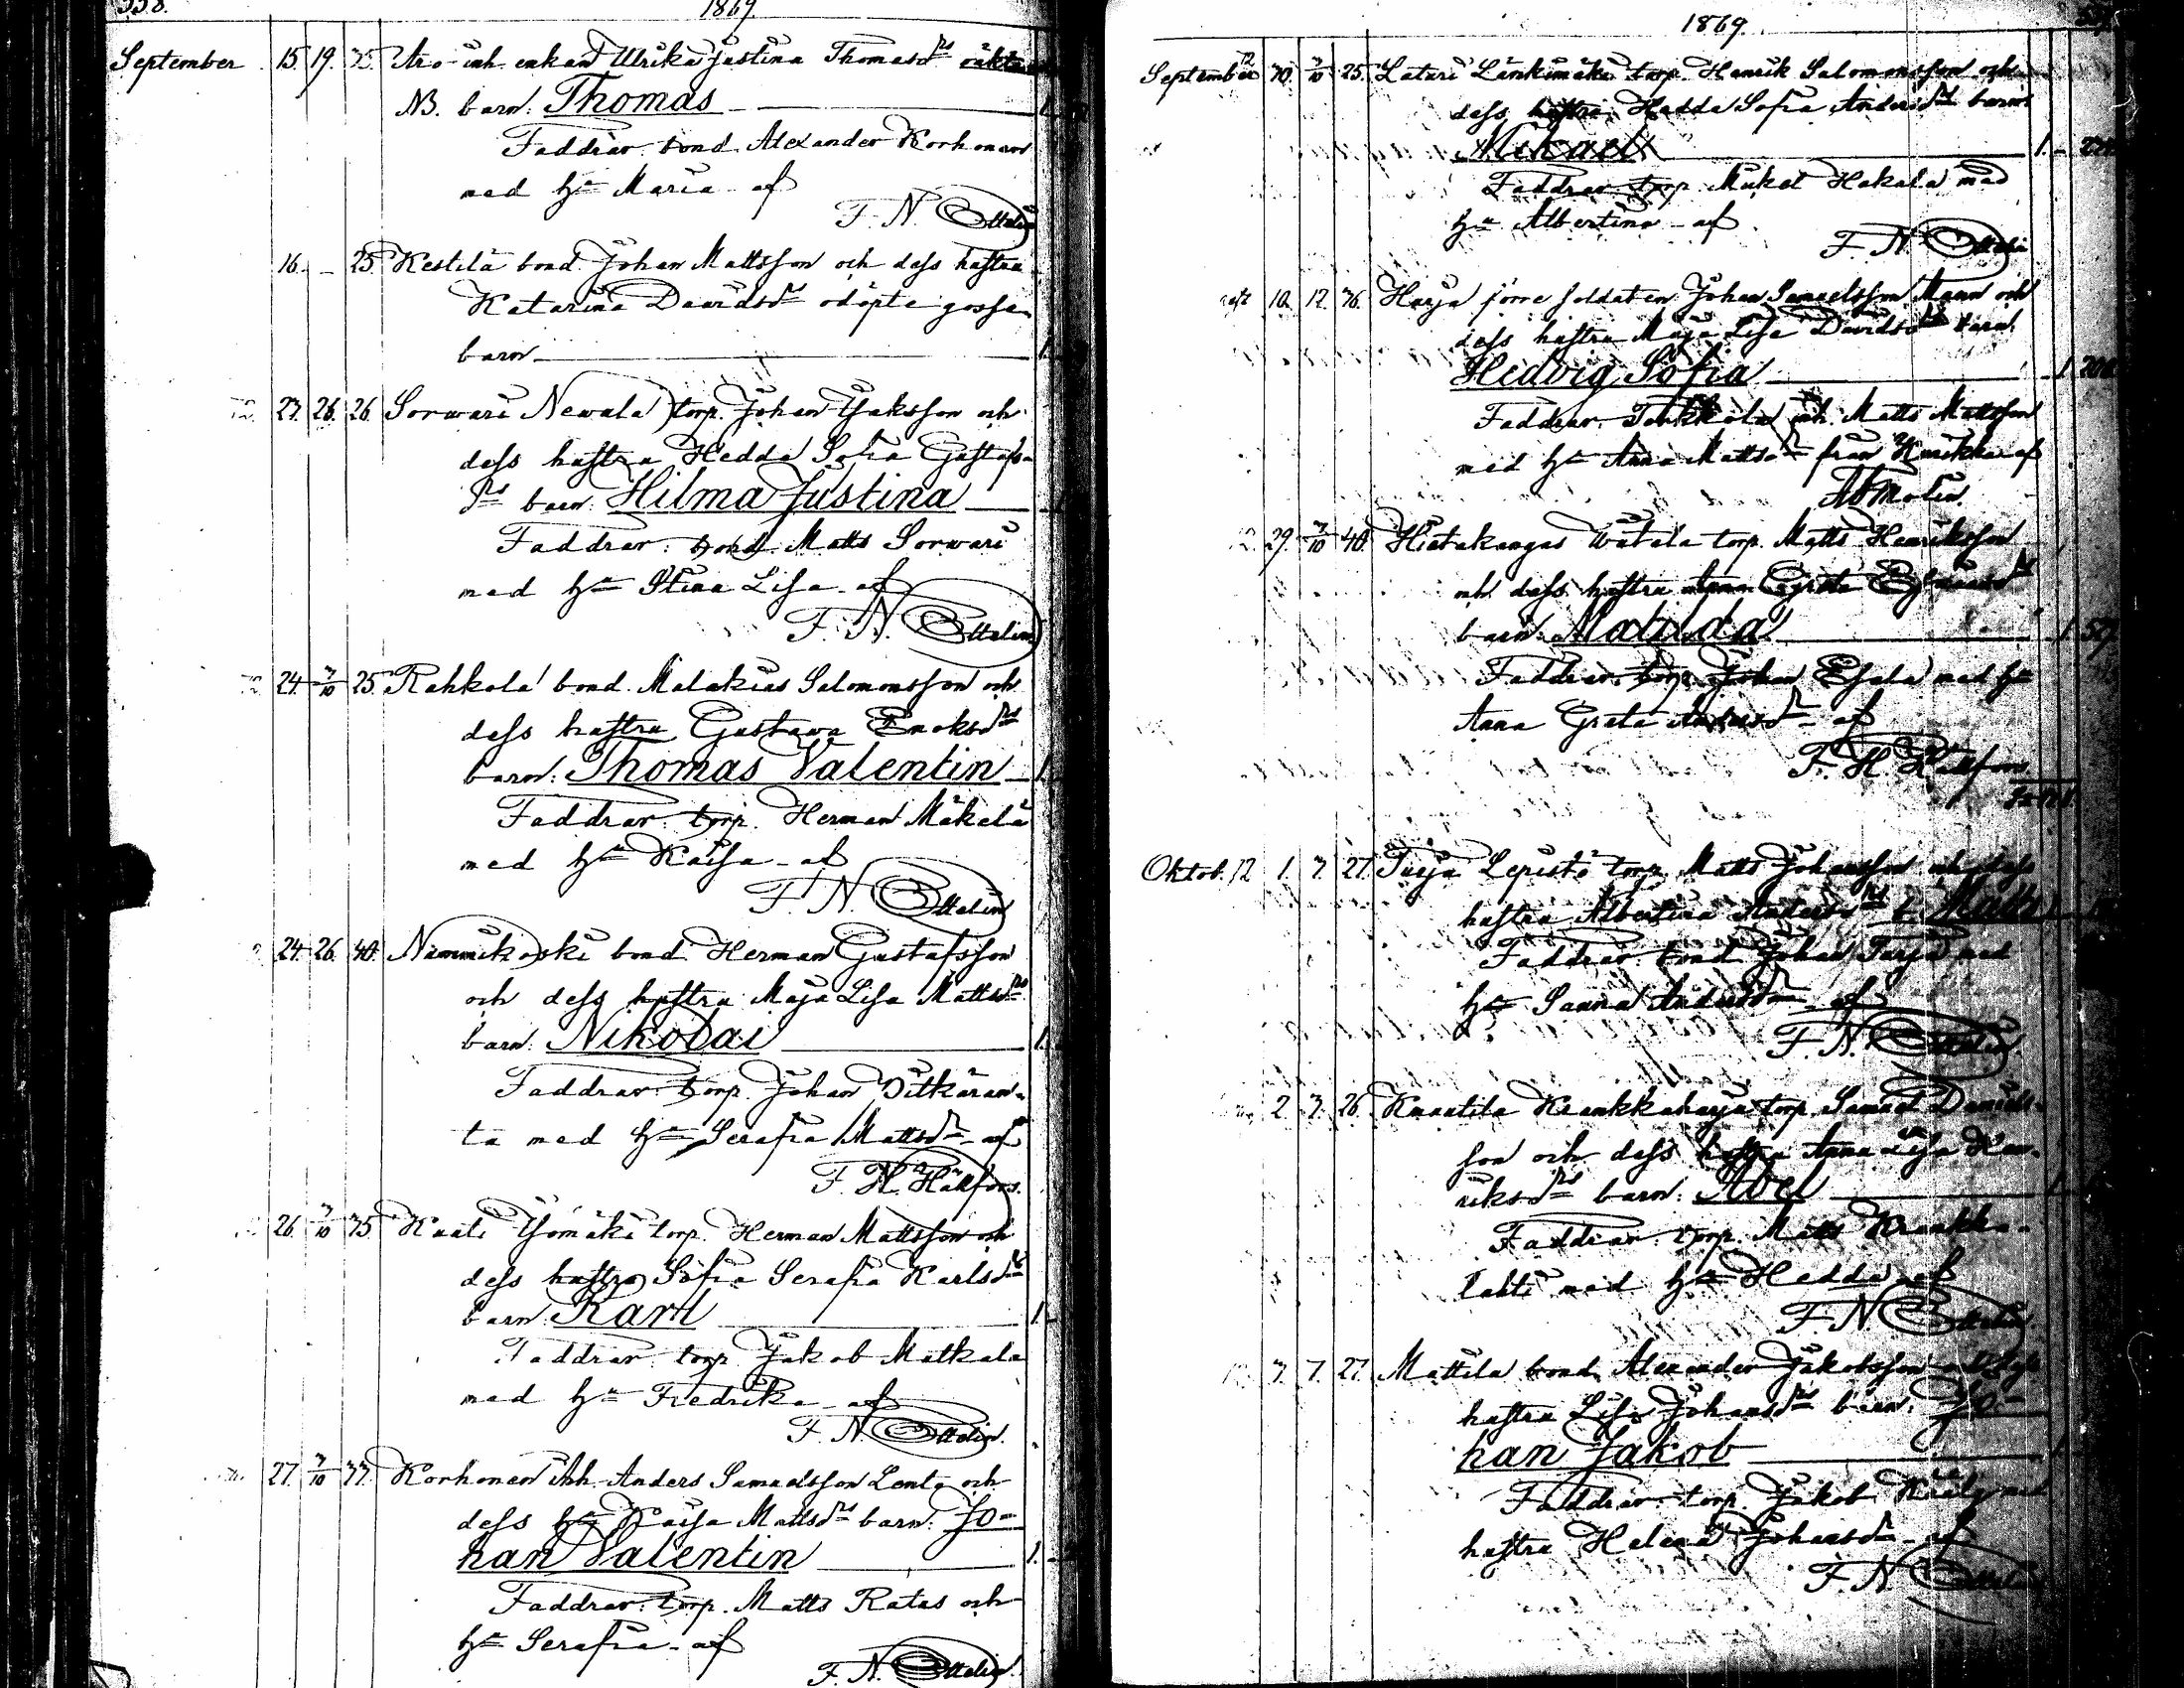 338. 1869.
September 15. 19. 35. Aro inh. enkan Ulrika Justina Thomasdrs oäkta
NB. barn: Thomas 1.
Faddrar: bond. Alexander Korhonen
med hu Maria af
F. N. Ottelin
16. - 25. Kestilä bond. Johan Mattsson och dess hustru
Katarina Davidsdrs odöpte gosse
barn 1.
23. 26. 26. Sorwari Newala torp. Johan Isaksson och
dess hustru Hedda Sofia Gustafs-
drs barn: Hilma Justina
Faddrar: bond. Matts Sorwari
med hu Stina Lisa af
F. N. Ottelin
24. 3/10 25. Rahkola bond. Malakias Salomonsson och
dess hustru Gustava Enoksdrs
barn: Thomas Valentin 1.
Faddrar: torp. Herman Mäkelä
med hu Kaisa af
F. N. Ottelin
24. 26. 40. Nummikoski bond. Herman Gustafsson
och dess hustru Maja Lisa Mattsdrs
barn: Nikolai 1.
Faddrar: torp. Johan Pitkäran-
ta med hu Serafia Mattsdr af
F. H. Hällfors.
26. 3/10 35. Kaati Yömäki torp. Herman Mattsson och
dess hustru Sofia Serafia Karlsdrs
barn: Karl 1.
Faddrar: torp. Jakob Matkala
med hu Fredrika af
F. N. Ottelin.
27. 3/10 37. Korhonen inh. Anders Samuelsson Lent och
dess hu Kaisa Mattsdrs barn: Jo-
han Valentin 1.
Faddrar: torp. Matts Ratas och
hu Serafia af
F. N. Ottelin.
1869.
September 12 30. 3/10 25. Latari Länkimäki torp. Henrik Salomonsson och
dess hustru Hedda Sofia Andersdrs barn
Mikael 1.
Faddrar torp. Mikel Hakala med
hu Albertina af
F. N. Ottelin
10. 12. 36. Harja förre soldaten Johan Samuelsson Mann och
dess hustru Maja Lisa Davidsdrs barn:
Hedvig Sofia 1.
Faddrar: Torkkola inh. Matts Mattsson
med hu Anna Mattsdr från Kurikka af
Ab Molin.
29. 3/10 40. Hietakangas torp. Matts Henriksson
och dess hustru Greta
barn: Matilda 1.
Faddrar: torp. Johan Esala med hu
Anna Greta Andersdr af
F. H. Hällfors
Oktob. 12 1. 3. 27. Tarja Lepistö torp. Matts Johansson och dess
hustru Albertina Andersdrs b. Matts
Faddrar: bond. Johan Tarja med
hu Sanna Andersdr af
F. N. Ottelin.
2. 3. 26. Knuutila Krankkaharja torp. Samuel Davids-
son och dess hustru Anna Lisa Hen-
riksdrs barn: Abel 1.
Faddrar: torp. Matts Krankka-
lahti med hu Hedda af
F. N. Ottelin
3. 7. 27. Mattila bond. Alexander Jakobsson och dess
hustru Lisa Johansdrs barn: Jo-
han Jakob
Faddrar: torp. Jakob med
hustru Helena Johansdr af
F. N. Ottelin